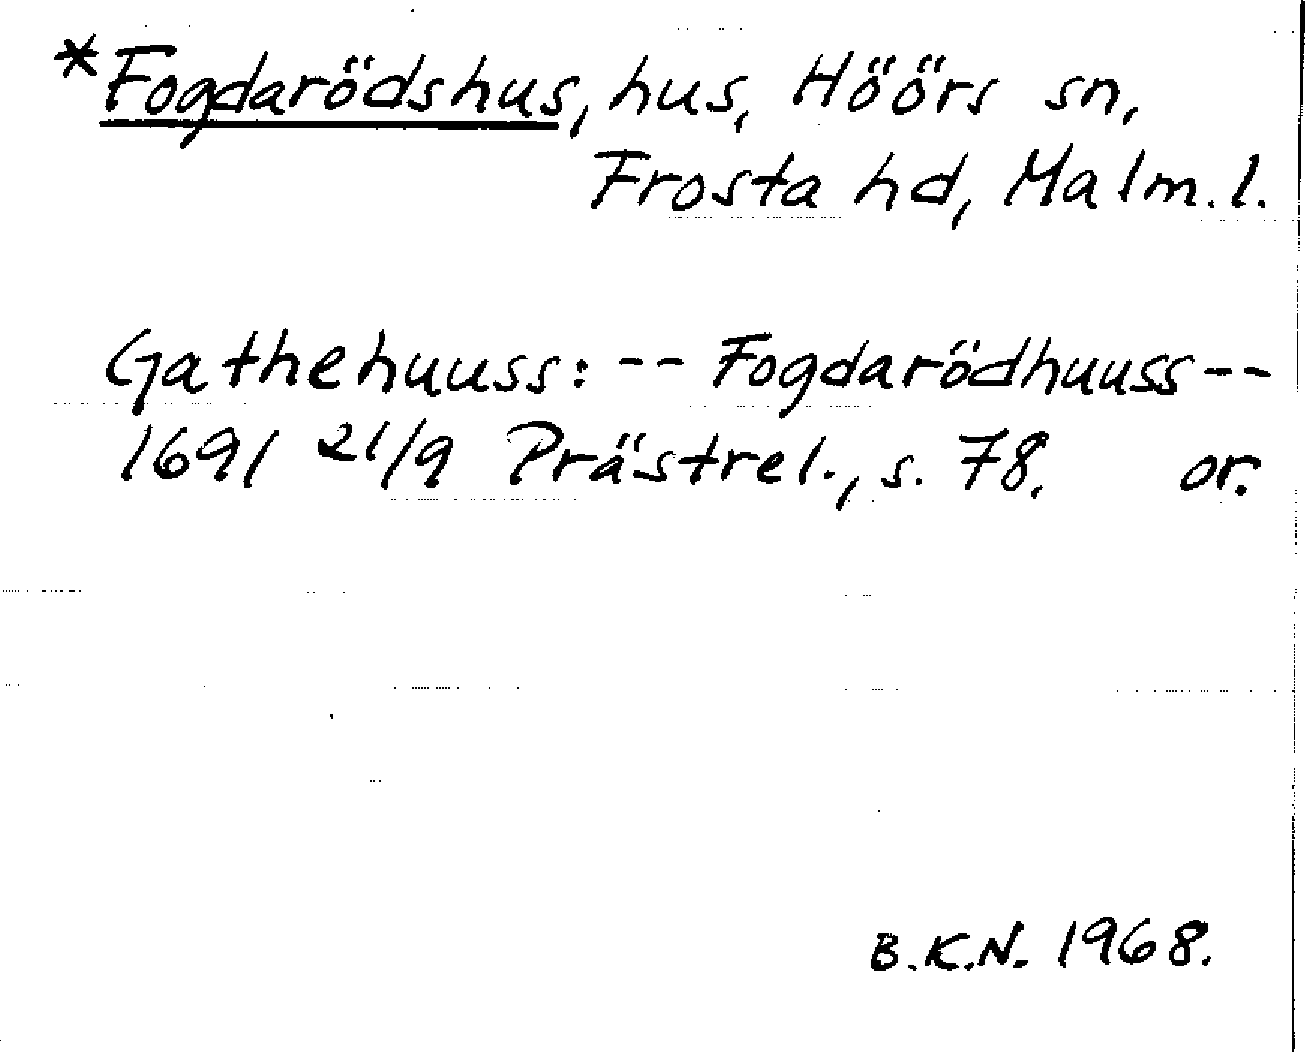 *Fogdarödshus, hus, Höörs sn,
Frosta hd, Malm. l.
Gathehuuss: -- Fogdarödhuuss --
1691 21/9 Prästrel., s. 78. or.
B.K.N. 1968.